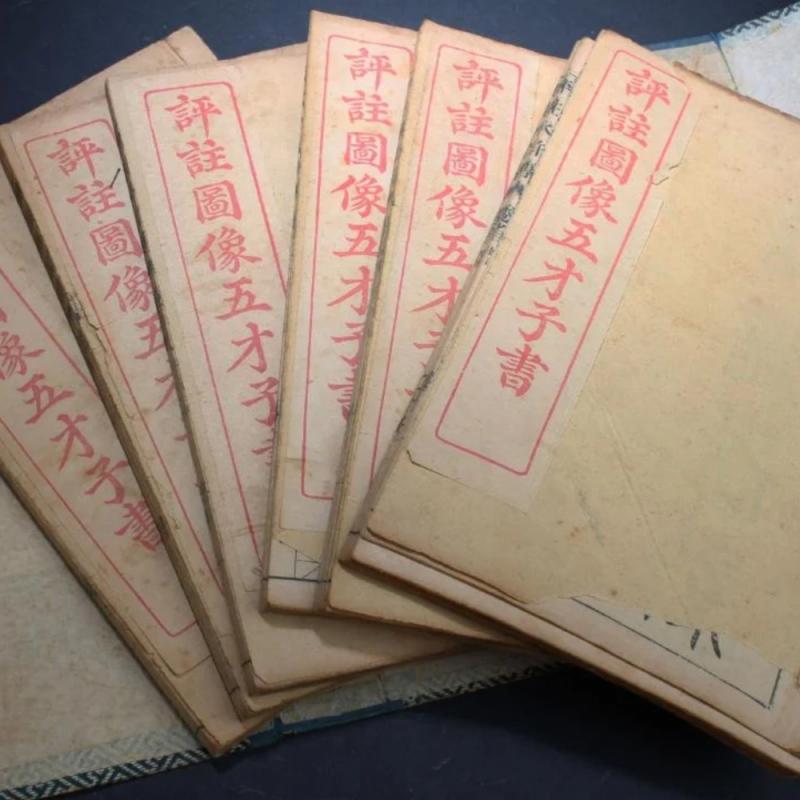 像五才子書
評註圖像五才
評註圖像五才子書
評註圖像五才子書
評註圖像五才子
評註圖像五才子書